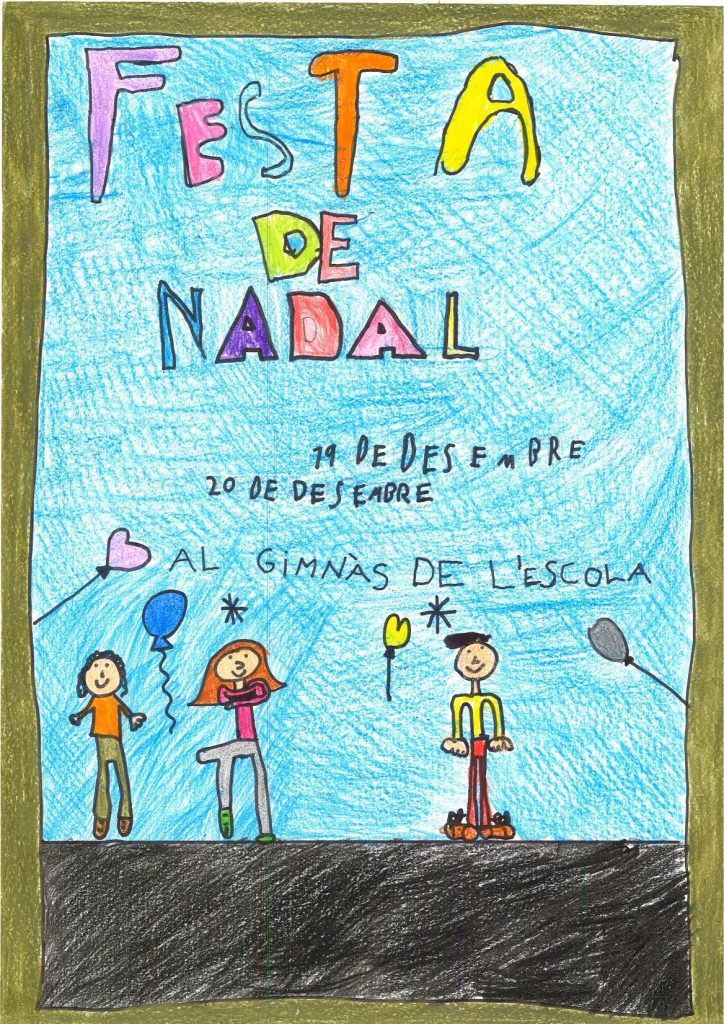 FESTA
DE
NADAL
19 DE DESEMBRE
20 DE DESEMBRE
AL GIMNÀS DE L'ESCOLA